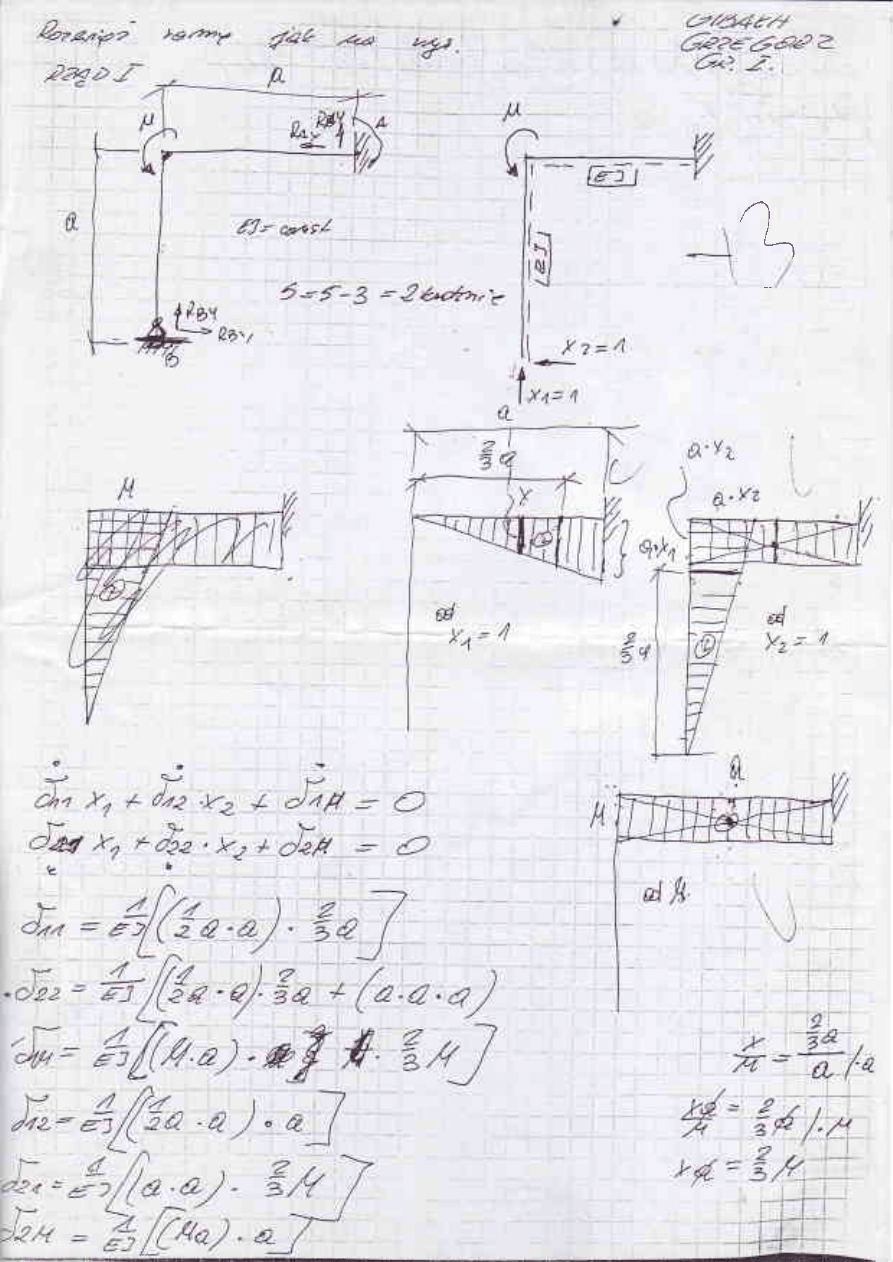 Rozwiąż ramę jak na rys.
GIBAŁA
GRZEGORZ
GR. I.
RZĄD I
a
M
RAY
RAX
A
a
EJ = const
S = 5 - 3 = 2 krotnie
RBY
RBX
B
M
EJ
EJ
3
X2 = 1
X1 = 1
M
a
2/3 a
x
a·X1
od
X1 = 1
a·X2
a·X2
2/3 a
od
X2 = 1
δ11 X1 + δ12 · X2 + δ1M = 0
δ21 X1 + δ22 · X2 + δ2M = 0
a
M
od M
δ11 = 1/EJ [(1/2 a·a) · 2/3 a]
δ22 = 1/EJ [(1/2 a·a) · 2/3 a + (a·a·a)
δ1M = 1/EJ [(M·a) · 2/3 M]
δ12 = 1/EJ [(1/2 a·a) · a]
δ21 = 1/EJ [(a·a) · 2/3 M]
δ2M = 1/EJ [(Ma) · a]
x/M = 2/3 a / a /·a
xa/M = 2/3 a /·M
xa = 2/3 M